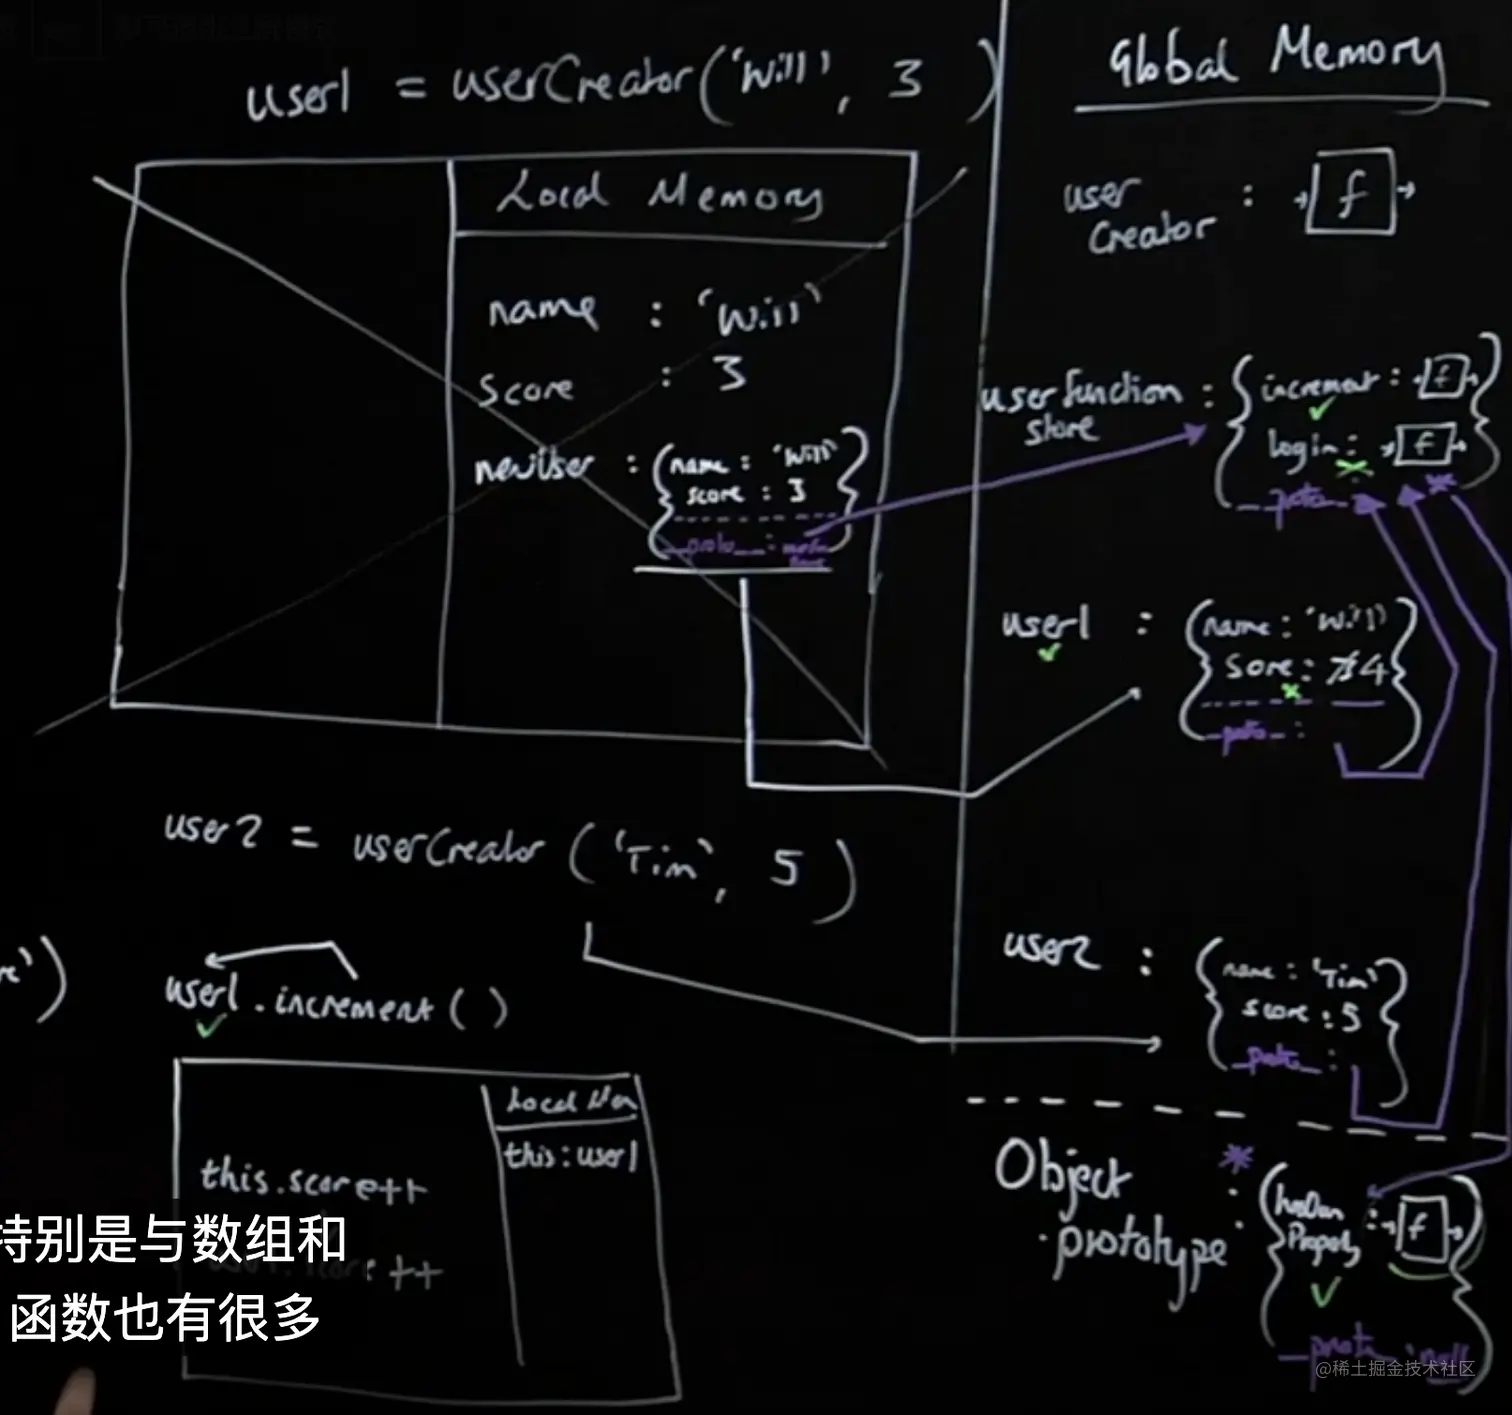 user1 = userCreator('Will', 3)
Local Memory
name : 'Will'
score : 3
newUser : {name : 'Will'
score : 3
__proto__ :
user2 = userCreator('Tim', 5)
user1.increment()
Local Mem
this : user1
this.score++
特别是与数组和
函数也有很多
Global Memory
user
Creator : f
userfunction
store : {increment : f
login : f
__proto__
user1 : {name : 'Will'
Score : 4
__proto__ :
user2 : {name : 'Tim'
score : 5
__proto__ :
Object
.prototype : {hasOwn
Property : f
__proto__ : null
@稀土掘金技术社区